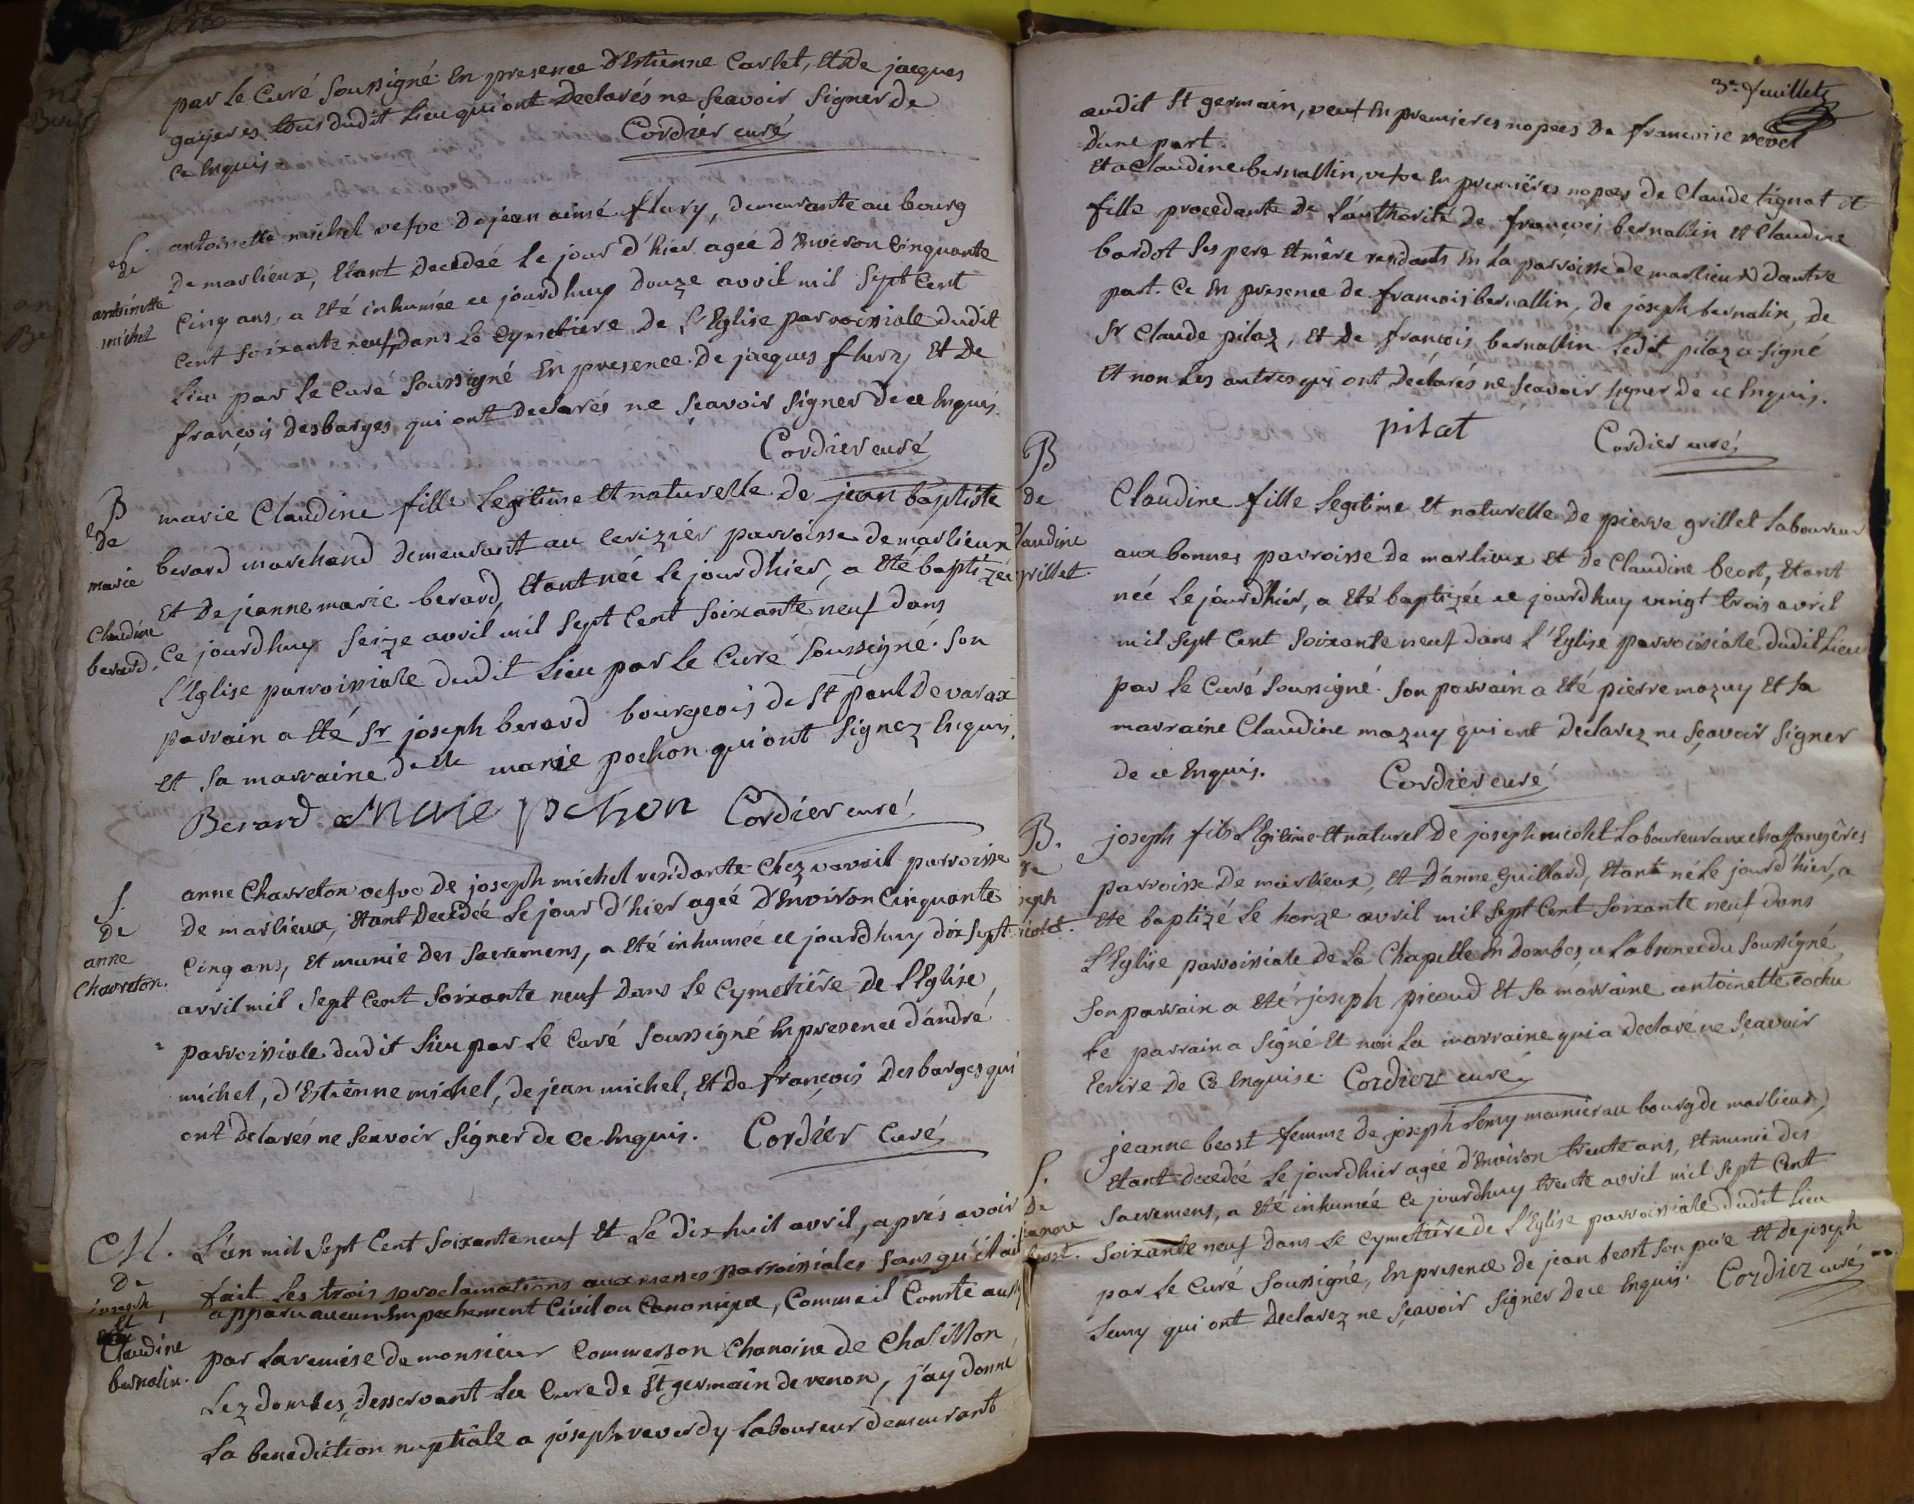 par le Curé soussigné en presence d'Estienne Carlet, et de jacques
gayeres tous dudit lieu qui ont declarés ne sçavoir signer de
ce enquis. Cordier curé
S.
de
antoinette
michel
antoinette michel vefve de jean aimé flury, demeurante au bourg
de marlieux, etant decedeé le jour d'hier ageé d'environ cinquante
cinq ans, a eté inhumée ce jourdhuy douze avril mil sept cent
cent soixante neuf dans le cymetiere de l'Eglise parroissiale dudit
lieu par le Curé soussigné en presence de jacques flury et de
françois desbarges qui ont declarés ne sçavoir signer de ce enquis.
Cordier curé
B
de
marie
Claudine
berard.
marie Claudine fille legitime et naturelle de jean baptiste
berard marchand demeurant au cerizier parroisse de marlieux
et de jeanne marie berard, etant née le jourdhier, a eté baptizée
ce jourdhuy seize avril mil sept cent soixante neuf dans
l'Eglise parroissiale dudit lieu par le Curé soussigné. son
parrain a eté sr joseph berard bourgeois de st paul de varax
et sa marraine delle marie pochon qui ont signez enquis.
Berard Marie pochon Cordier curé
S.
de
anne
Charreton.
anne Charreton vefve de joseph michel residante chez vavril parroisse
de marlieux, etant decedée le jour d'hier ageé d'environ cinquante
cinq ans, et munie des sacremens, a eté inhumée ce jourdhuy dix sept
avril mil sept cent soixante neuf dans le cymetiêre de l'Eglise
parroissiale dudit lieu par le Curé soussigné en presence d'andré
michel, d'Estienne michel, de jean michel, et de françois desbarges qui
ont declarés ne sçavoir signer de ce enquis. Cordier Curé
M.
De
joseph
et
Claudine
bernalin.
L'an mil sept cent soixante neuf et le dix huit avril, après avoir
fait les trois proclamations aux messes parroissiales sans qu'il ait
apparu aucun empechement Civil ou Canonique, Comme il Conste aussi
par la remise de monsieur Commerson Chanoine de Chatillon
lez dombes, desservant la Cure de st germain de renon, j'ay donné
la benediction nuptiale a joseph reverdy laboureur demeurant
3e feuillet
audit st germain, veuf en premieres nopces de francoise revel
d'une part.
et a Claudine bernallin, vefve en premières nopces de Claude tignat et
fille procedante de l'authorité de françois bernallin et Claudine
bardot ses pere et mère residants en la parroisse de marlieux d'autre
part. Ce en presence de francois bernallin, de joseph bernalin, de
sr Claude pilaz, et de françois bernallin ledit pilaz a signé
et non les autres qui ont declarés ne sçavoir signer de ce enquis.
pilat Cordier curé
B
de
Claudine
grillet.
Claudine fille legitime et naturelle de pierre grillet laboureur
aux bonnes parroisse de marlieux et de Claudine beost, etant
née le jourdhier, a eté baptizée ce jourdhuy vingt trois avril
mil sept cent soixante neuf dans l'Eglise parroissiale dudit lieu
par le Curé soussigné. son parrain a eté pierre mazuy et sa
marraine Claudine mazuy qui ont declarez ne sçavoir signer
de ce enquis. Cordier curé
B.
de
joseph
nicolet.
joseph fils legitime et naturel de joseph nicolet laboureur aux chaffangeres
parroisse de marlieux, et d'anne guillard, etant né le jourd'hier, a
eté baptizé le honze avril mil sept cent soixante neuf dans
l'Eglise parroissiale de la Chapelle en dombes, en l'absence du soussigné
son parrain a eté joseph picoud et sa marraine antoinette cochu
le parrain a signé et non la marraine qui a declaré ne sçavoir
ecrire de ce enquise. Cordier curé
S.
de
jeanne
beost.
jeanne beost femme de joseph semy munier au bourg de marlieux,
etant decedée le jourdhier ageé d'environ trente ans, et munie des
sacremens, a eté inhumée ce jourdhuy trente avril mil sept cent
soixante neuf dans le cymetiêre de l'Eglise parroissiale dudit lieu
par le Curé soussigné, en presence de jean beost son pere et de joseph
semy qui ont declarez ne sçavoir signer de ce enquis. Cordier curé